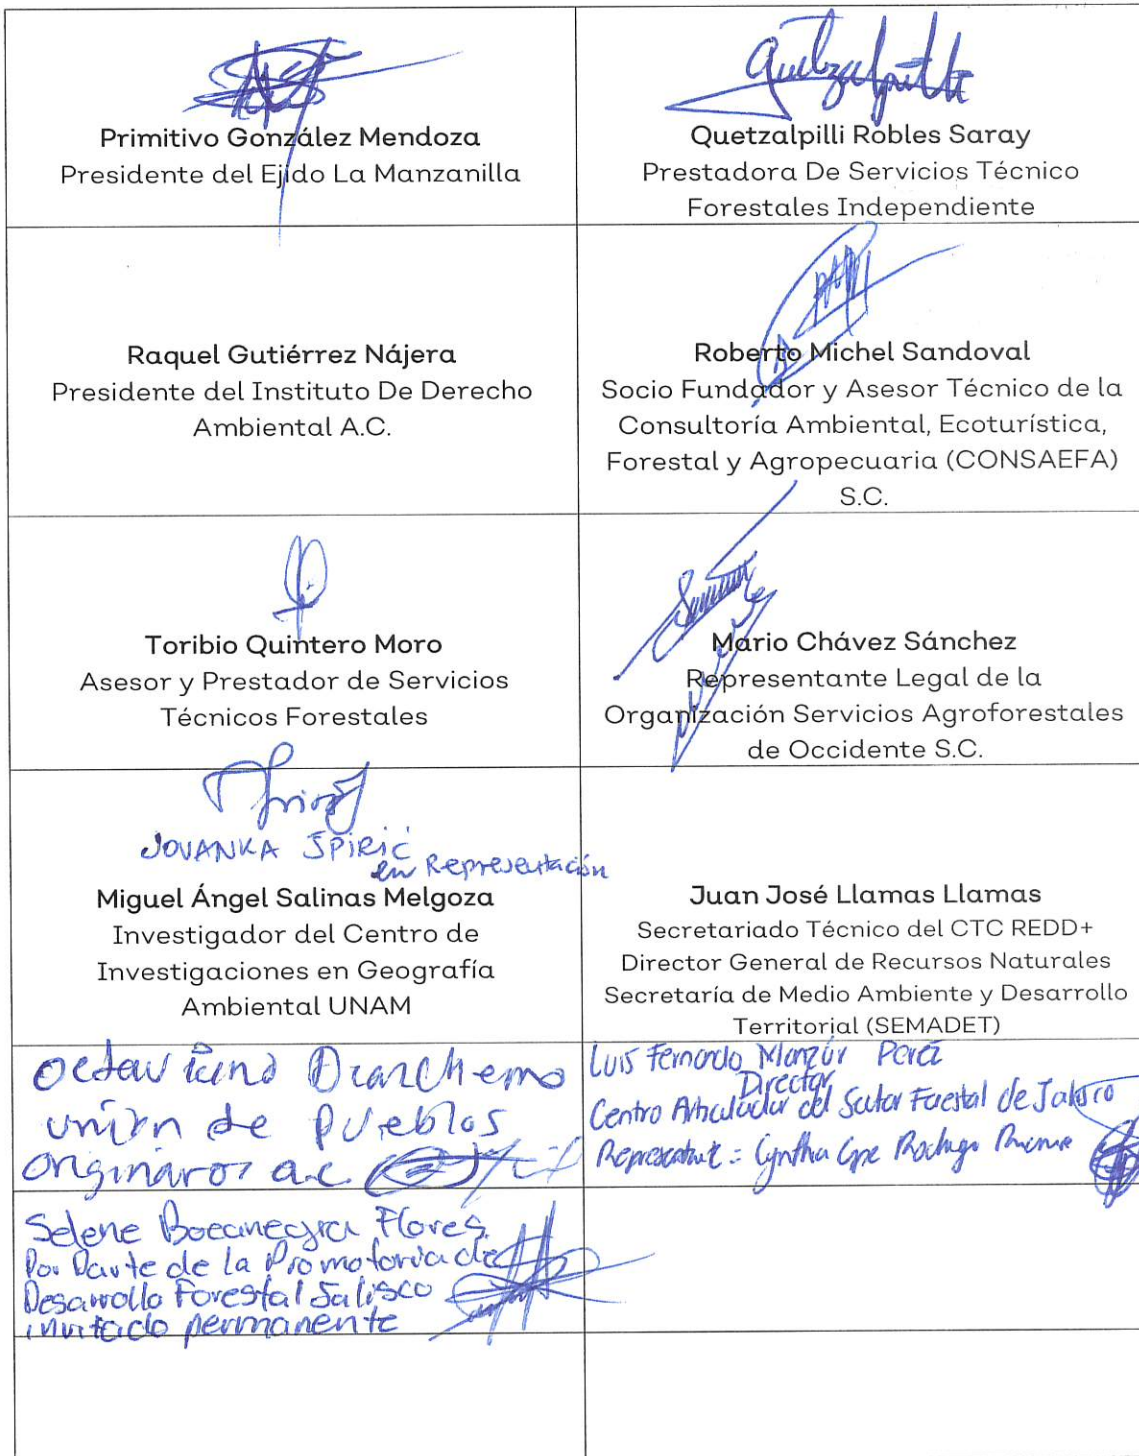 Quetzalpilli
Primitivo González Mendoza
Presidente del Ejido La Manzanilla
Quetzalpilli Robles Saray
Prestadora De Servicios Técnico
Forestales Independiente
Raquel Gutiérrez Nájera
Presidente del Instituto De Derecho
Ambiental A.C.
Roberto Michel Sandoval
Socio Fundador y Asesor Técnico de la
Consultoría Ambiental, Ecoturística,
Forestal y Agropecuaria (CONSAEFA)
S.C.
Toribio Quintero Moro
Asesor y Prestador de Servicios
Técnicos Forestales
Mario Chávez Sánchez
Representante Legal de la
Organización Servicios Agroforestales
de Occidente S.C.
JOVANKA SPIRIĆ
en Representación
Miguel Ángel Salinas Melgoza
Investigador del Centro de
Investigaciones en Geografía
Ambiental UNAM
Juan José Llamas Llamas
Secretariado Técnico del CTC REDD+
Director General de Recursos Naturales
Secretaría de Medio Ambiente y Desarrollo
Territorial (SEMADET)
union de pueblos
originarios a.c.
Luis Fernando Manzúr Perez
Director
Centro Articulador del Sector Forestal de Jalisco
Representante: Cynthia Gpe
Selene Bocanegra Flores
Por Parte de la Promotoria de
Desarrollo Forestal Jalisco
invitado permanente